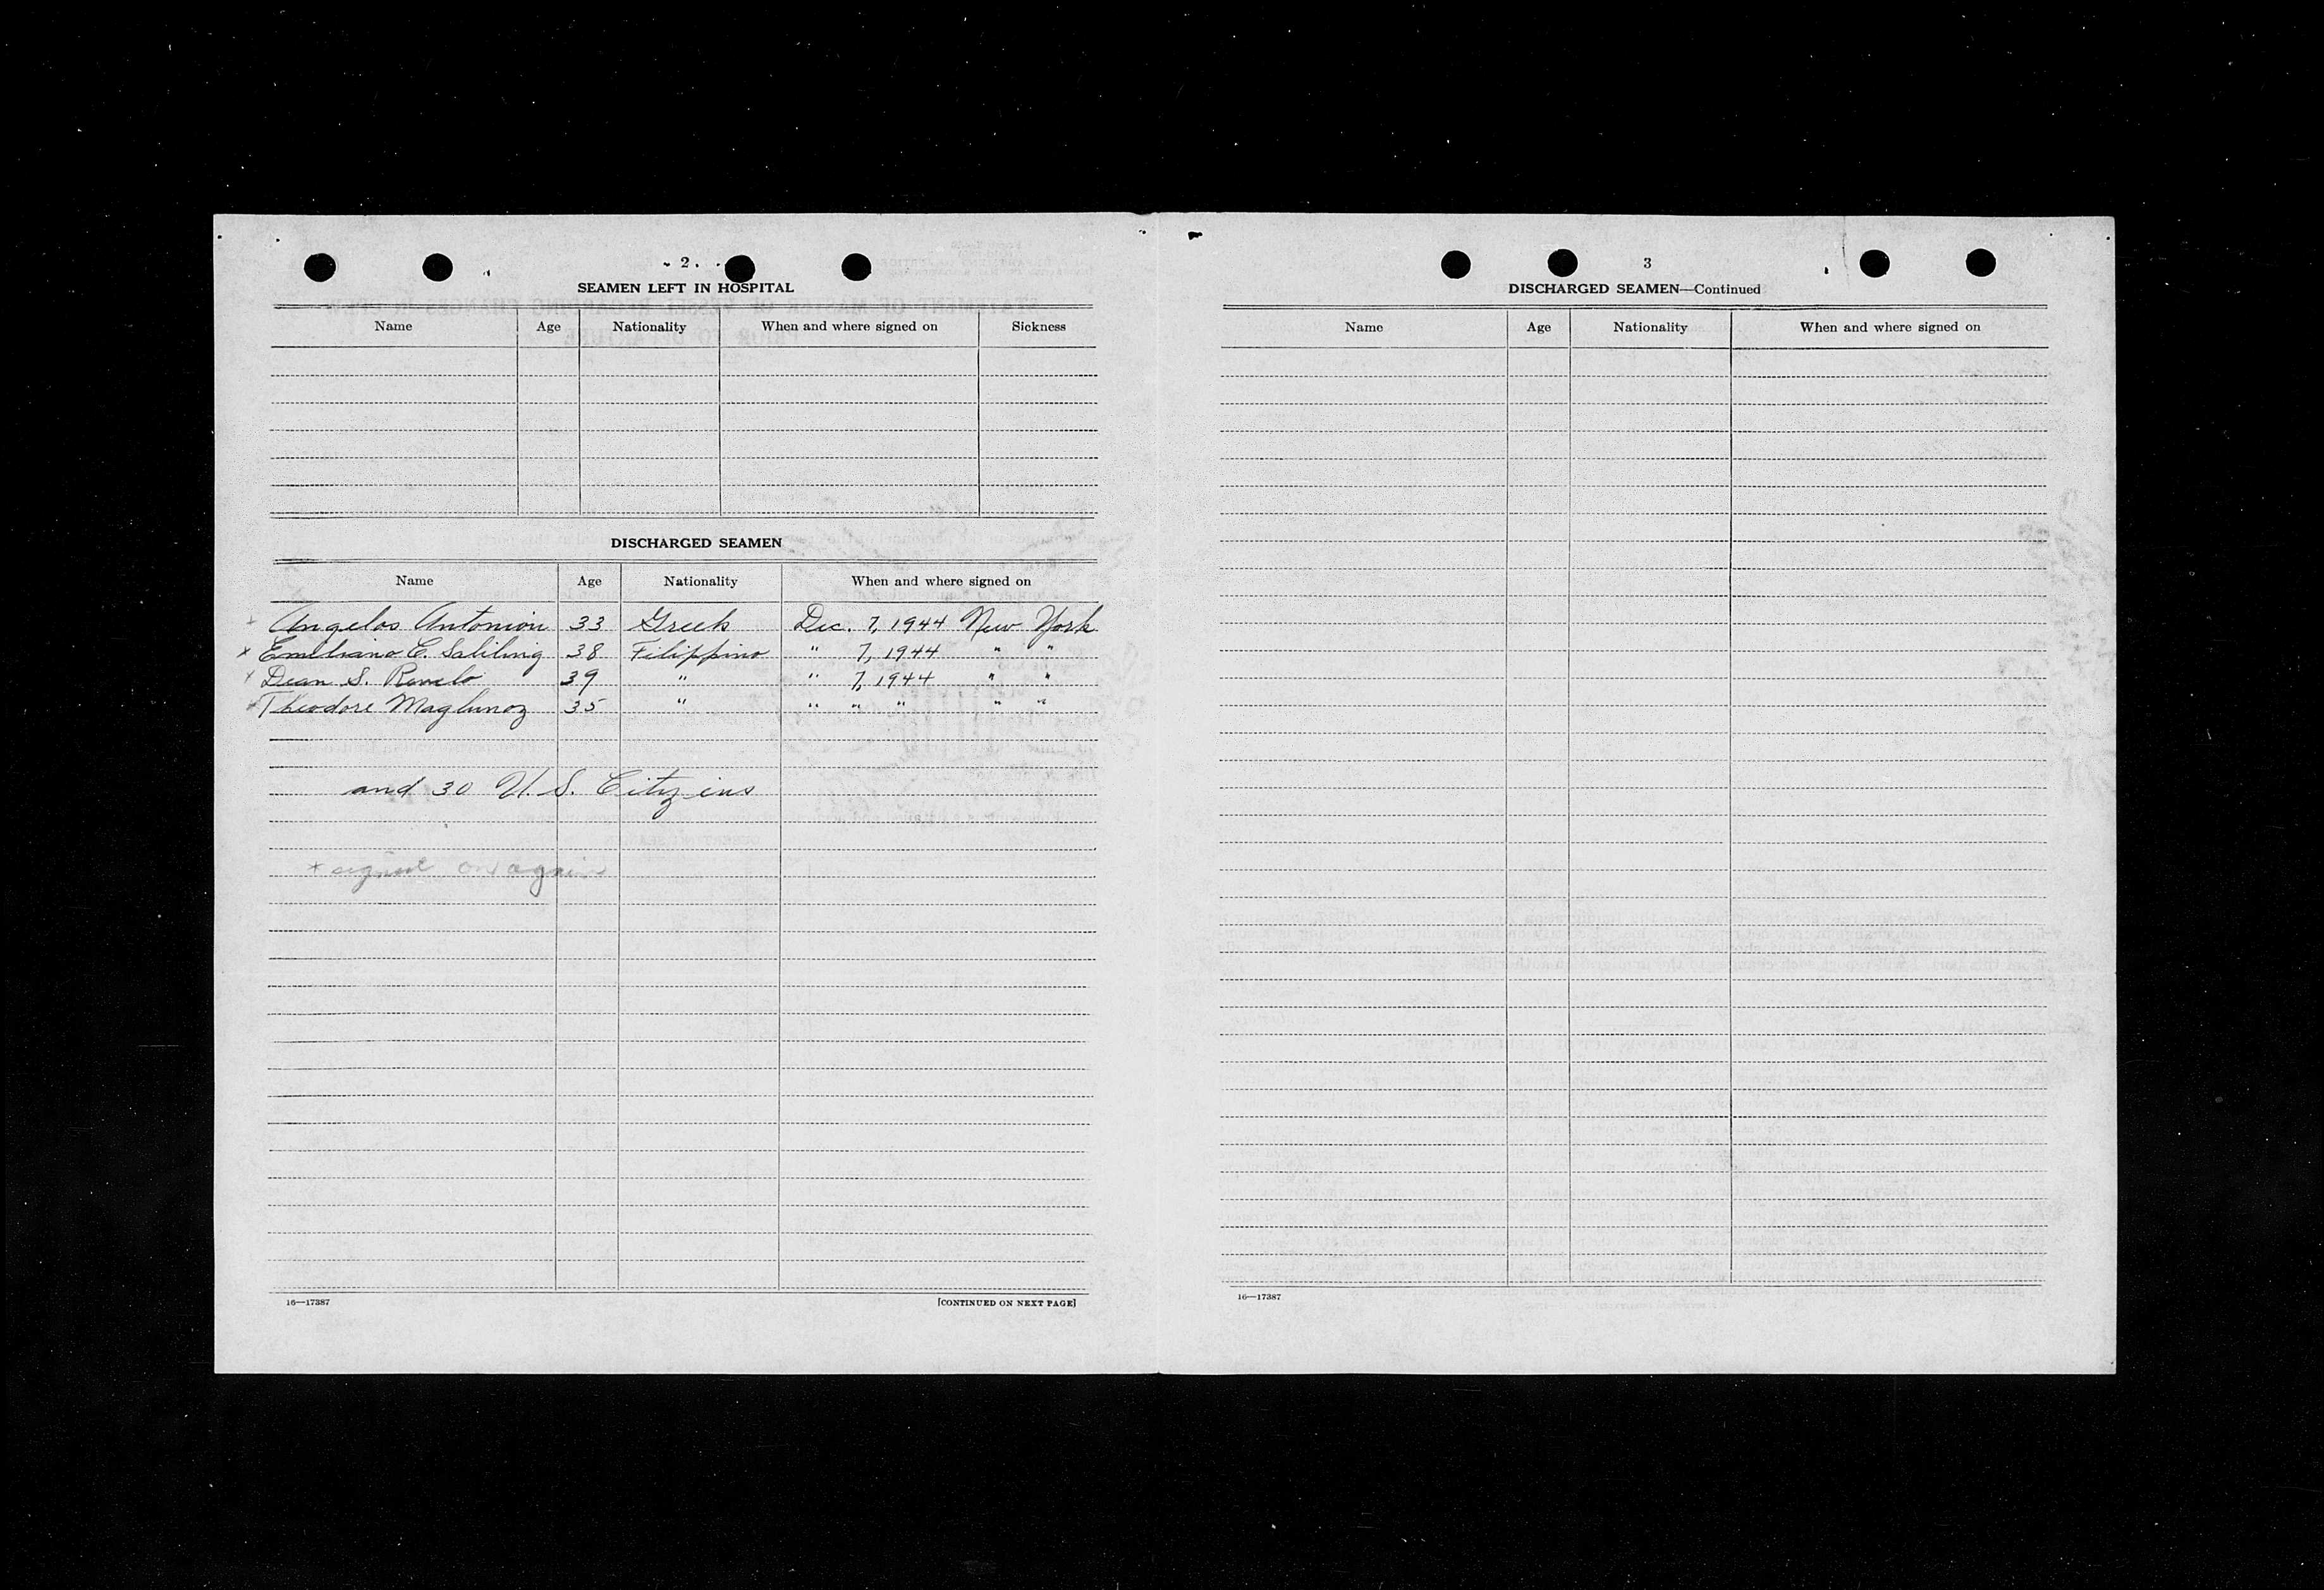 - 2. -
SEAMEN LEFT IN HOSPITAL
Name Age Nationality When and where signed on Sickness
DISCHARGED SEAMEN
Name Age Nationality When and where signed on
Angelos Antoniou 33 Greek Dec. 7, 1944 New York
x Emiliano C. Saliling 38 Filippino " 7, 1944 " "
x Dean S. 39 " " 7, 1944 " "
x Theodore 35 " " " " " "
and 30 U. S. Citizens
x signed on again
16—17387 [CONTINUED ON NEXT PAGE]
3
DISCHARGED SEAMEN—Continued
Name Age Nationality When and where signed on
16—17387